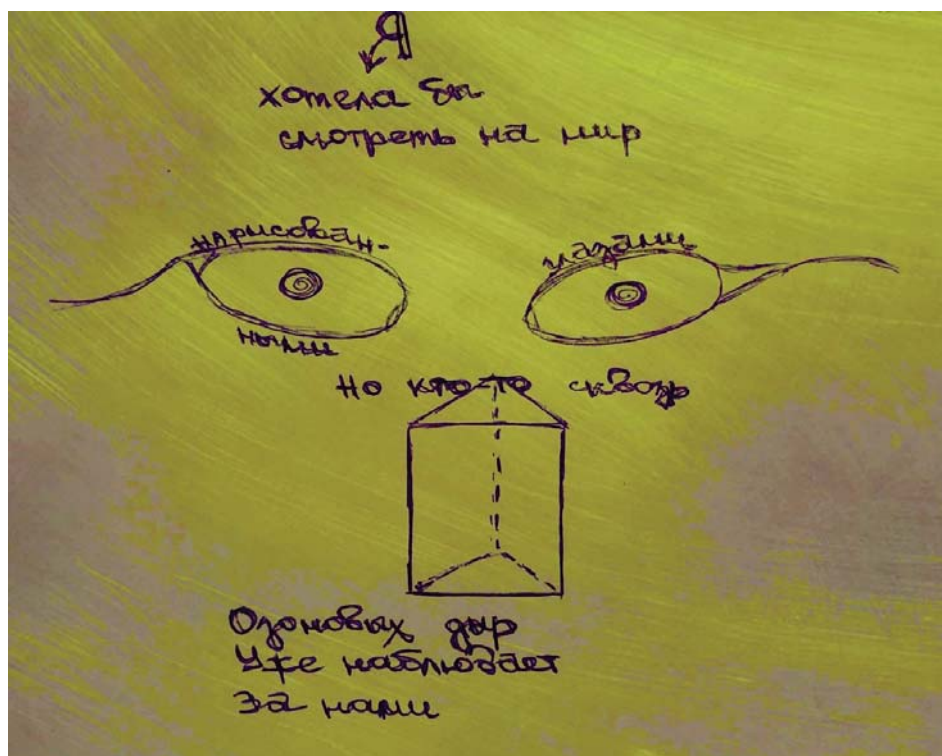 Я
хотела бы
смотреть на мир
нарисован-
ными
глазами
Но кто-то сквозь
Озоновых дыр
Уже наблюдает
за нами